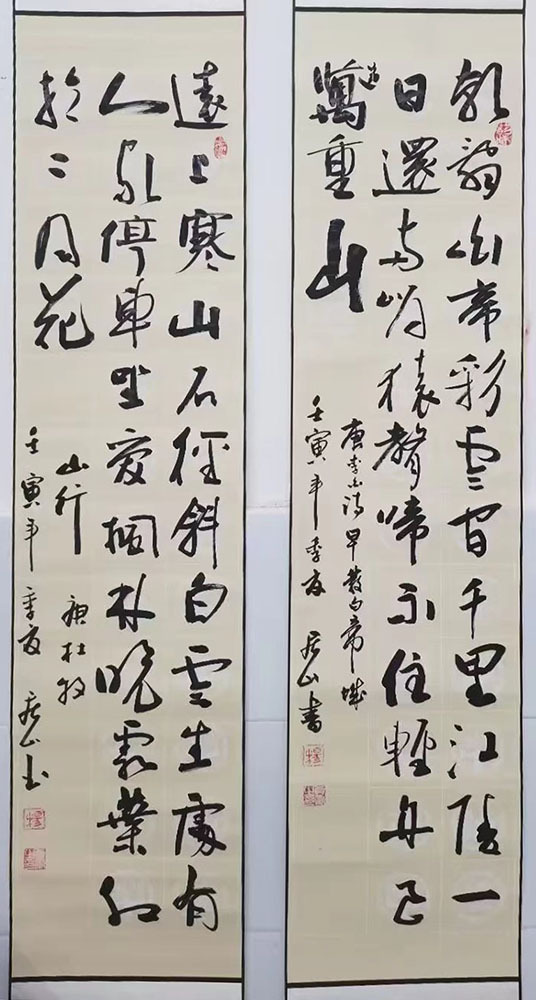 朝辭白帝彩雲間千里江陵一
日還兩岸猿聲啼不住輕舟已
過萬重山
唐李白詩早發白帝城
壬寅年季夏 山書
遠上寒山石徑斜白雲生處有
人家停車坐愛楓林晚霜葉紅
於二月花
山行 唐杜牧
壬寅年季夏 山书